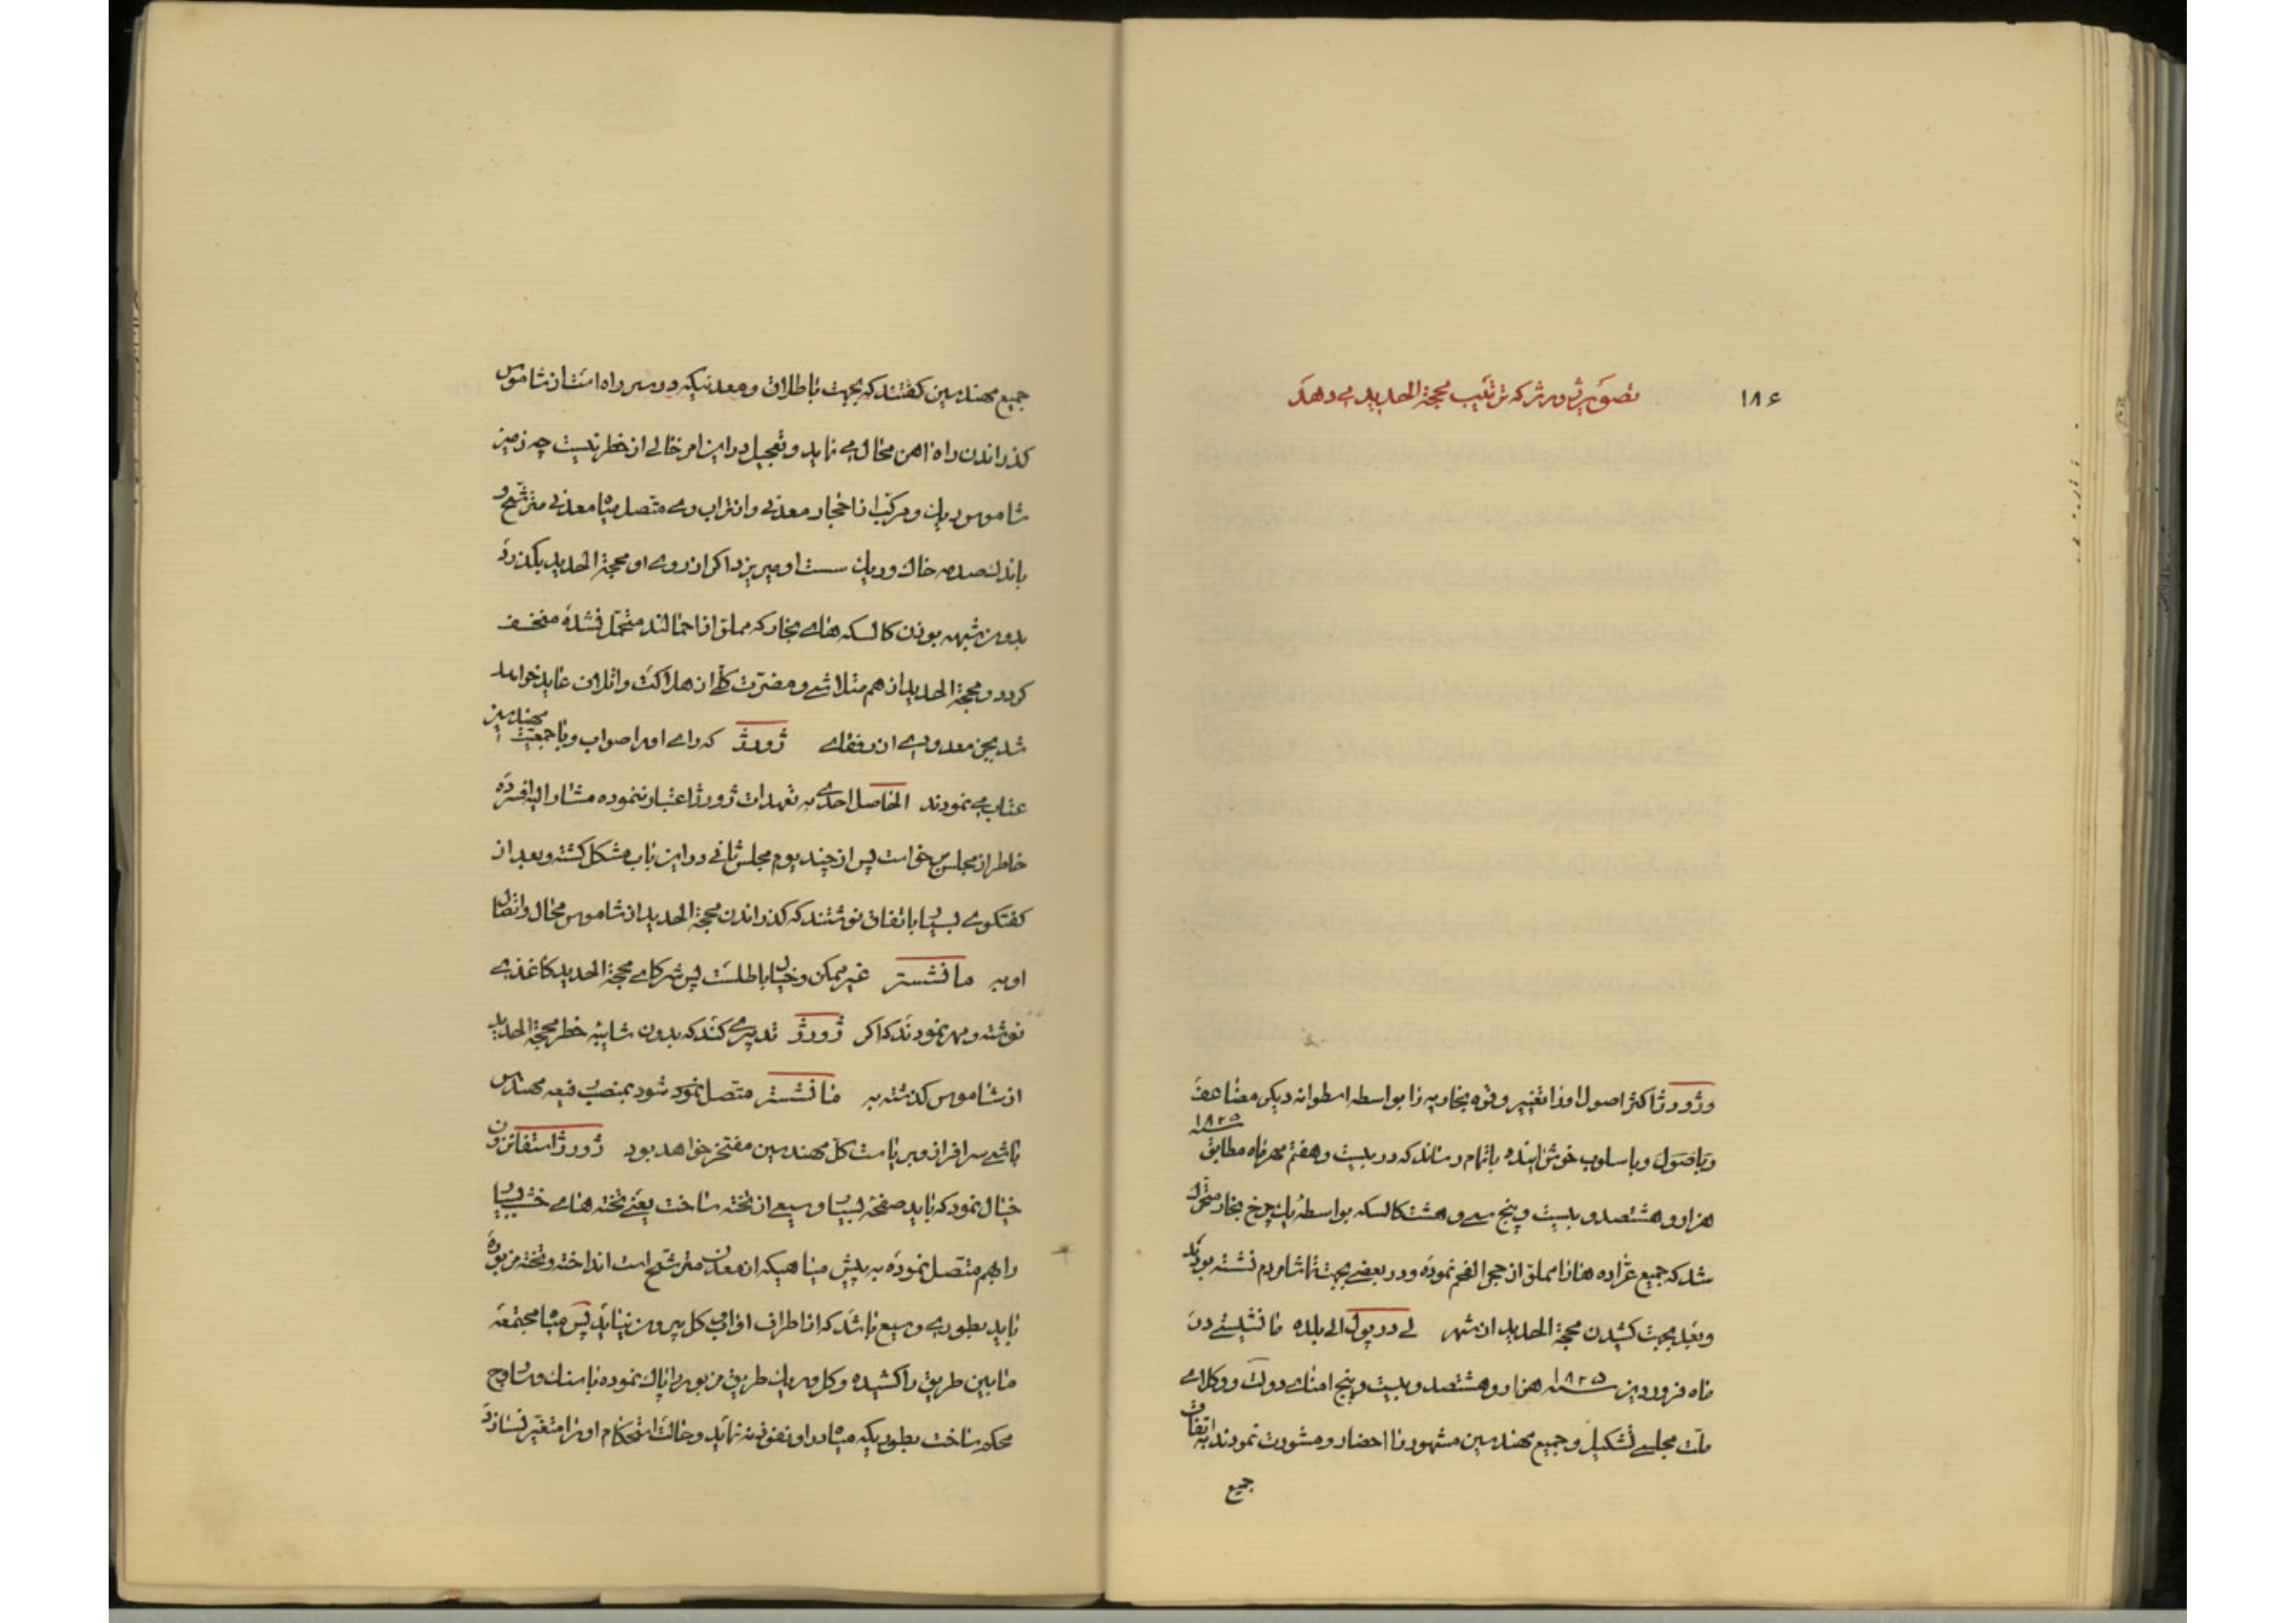 ۱۸۶
تصویر ژورژ که ترتیب محجة الحدید می دهد
و ژورژ اکثر اصول او را تغییر و قوه بخاریه را بواسطه اسطوانه دیکر مضاعف
و باصول و باسلوب خوش اینده باتمام رساند که در بیست و هفتم مهرماه مطابق ۱۸۲۵ سنه
هزار و هشتصد و بیست و پنج سی و هشت کالسکه بواسطهٔ یک چرخ بخار متحرک
شد که جمیع عراده ها را مملو از حجر الفحم نموده و در بعضی بجهت تماشا مردم نشسته بودند
و بعد بجهت کشیدن محجة الحدید از شهر لی در پول الی بلده مانشیستر در
ماه فروردین سنه ۱۸۲۵ هزار و هشتصد و بیست و پنج امنای دولت و وکلای
ملت مجلسی تشکیل و جمیع مهندسین مشهور را احضار و مشورت نمودند باتفاق
جمیع
جمیع مهندسین کفتند که بجهت باطلاق و معدنیکه در سر راه است از شاموس
کذراندن راه اهن محال می نماید و تعجیل در این امر خالی از خطر نیست چه زمین
شاموس ریک و مرکب از احجار معدنی و اتراب وی متصل میاه معدنی مترشح و
باندک صدمه خاک و ریک سست او میریزد اکر از روی او محجة الحدید بکذرد
بدون شبهه بوزن کالسکه های بخار که مملو از احمالند متحمل نشده منخسف
کردد و محجة الحدید از هم متلاشی و مضرت کلی از هلاکت و اتلاف عاید خواهد
شد بجز معدودی از رفقای ژورژ که رای او را صواب و با جمعیت مهندسین
عتاب می نمودند الحاصل احدی به تعهدات ژورژ اعتبار ننموده مشار الیه افسرده
خاطر از مجلس برخواست پس از چند یوم مجلس ثانی در این باب مشکل کشته و بعد از
کفتکوی بسیار باتفاق نوشتند که کذراندن محجة الحدید از شاموس محال و اتصال
او به مانشستر غیر ممکن و خیال باطلست پس شرکای محجة الحدید کاغذی
نوشته و مهر نمودند که اکر ژورژ تدبیری کند که بدون شایبه خطر محجة الحدید
از شاموس کذشته به مانشستر متصل نمود شود بمنصب رفیعه مهندس
باشی سرافراز و بریاست کل مهندسین مفتخر خواهد بود ژورژ استفانزون
خیال نمود که باید صفحهٔ بسیار وسیعی از تخته ساخت یعنی تخته های خشب بسیار
را بهم متصل نموده به پیش میاهیکه از معدن مترشح است انداخته و تخته مزبوره
باید بطوری وسیع باشد که از اطراف او آب کل بیرون نیاید پس میاه مجتمعه
مابین طریق را کشیده و کل و ریک طریق مزبور را پاک نموده با سنک و ساروج
محکم ساخت بطوریکه میاه در او نفوذ نه نماید و حالت استحکام او را متغیر نسازد